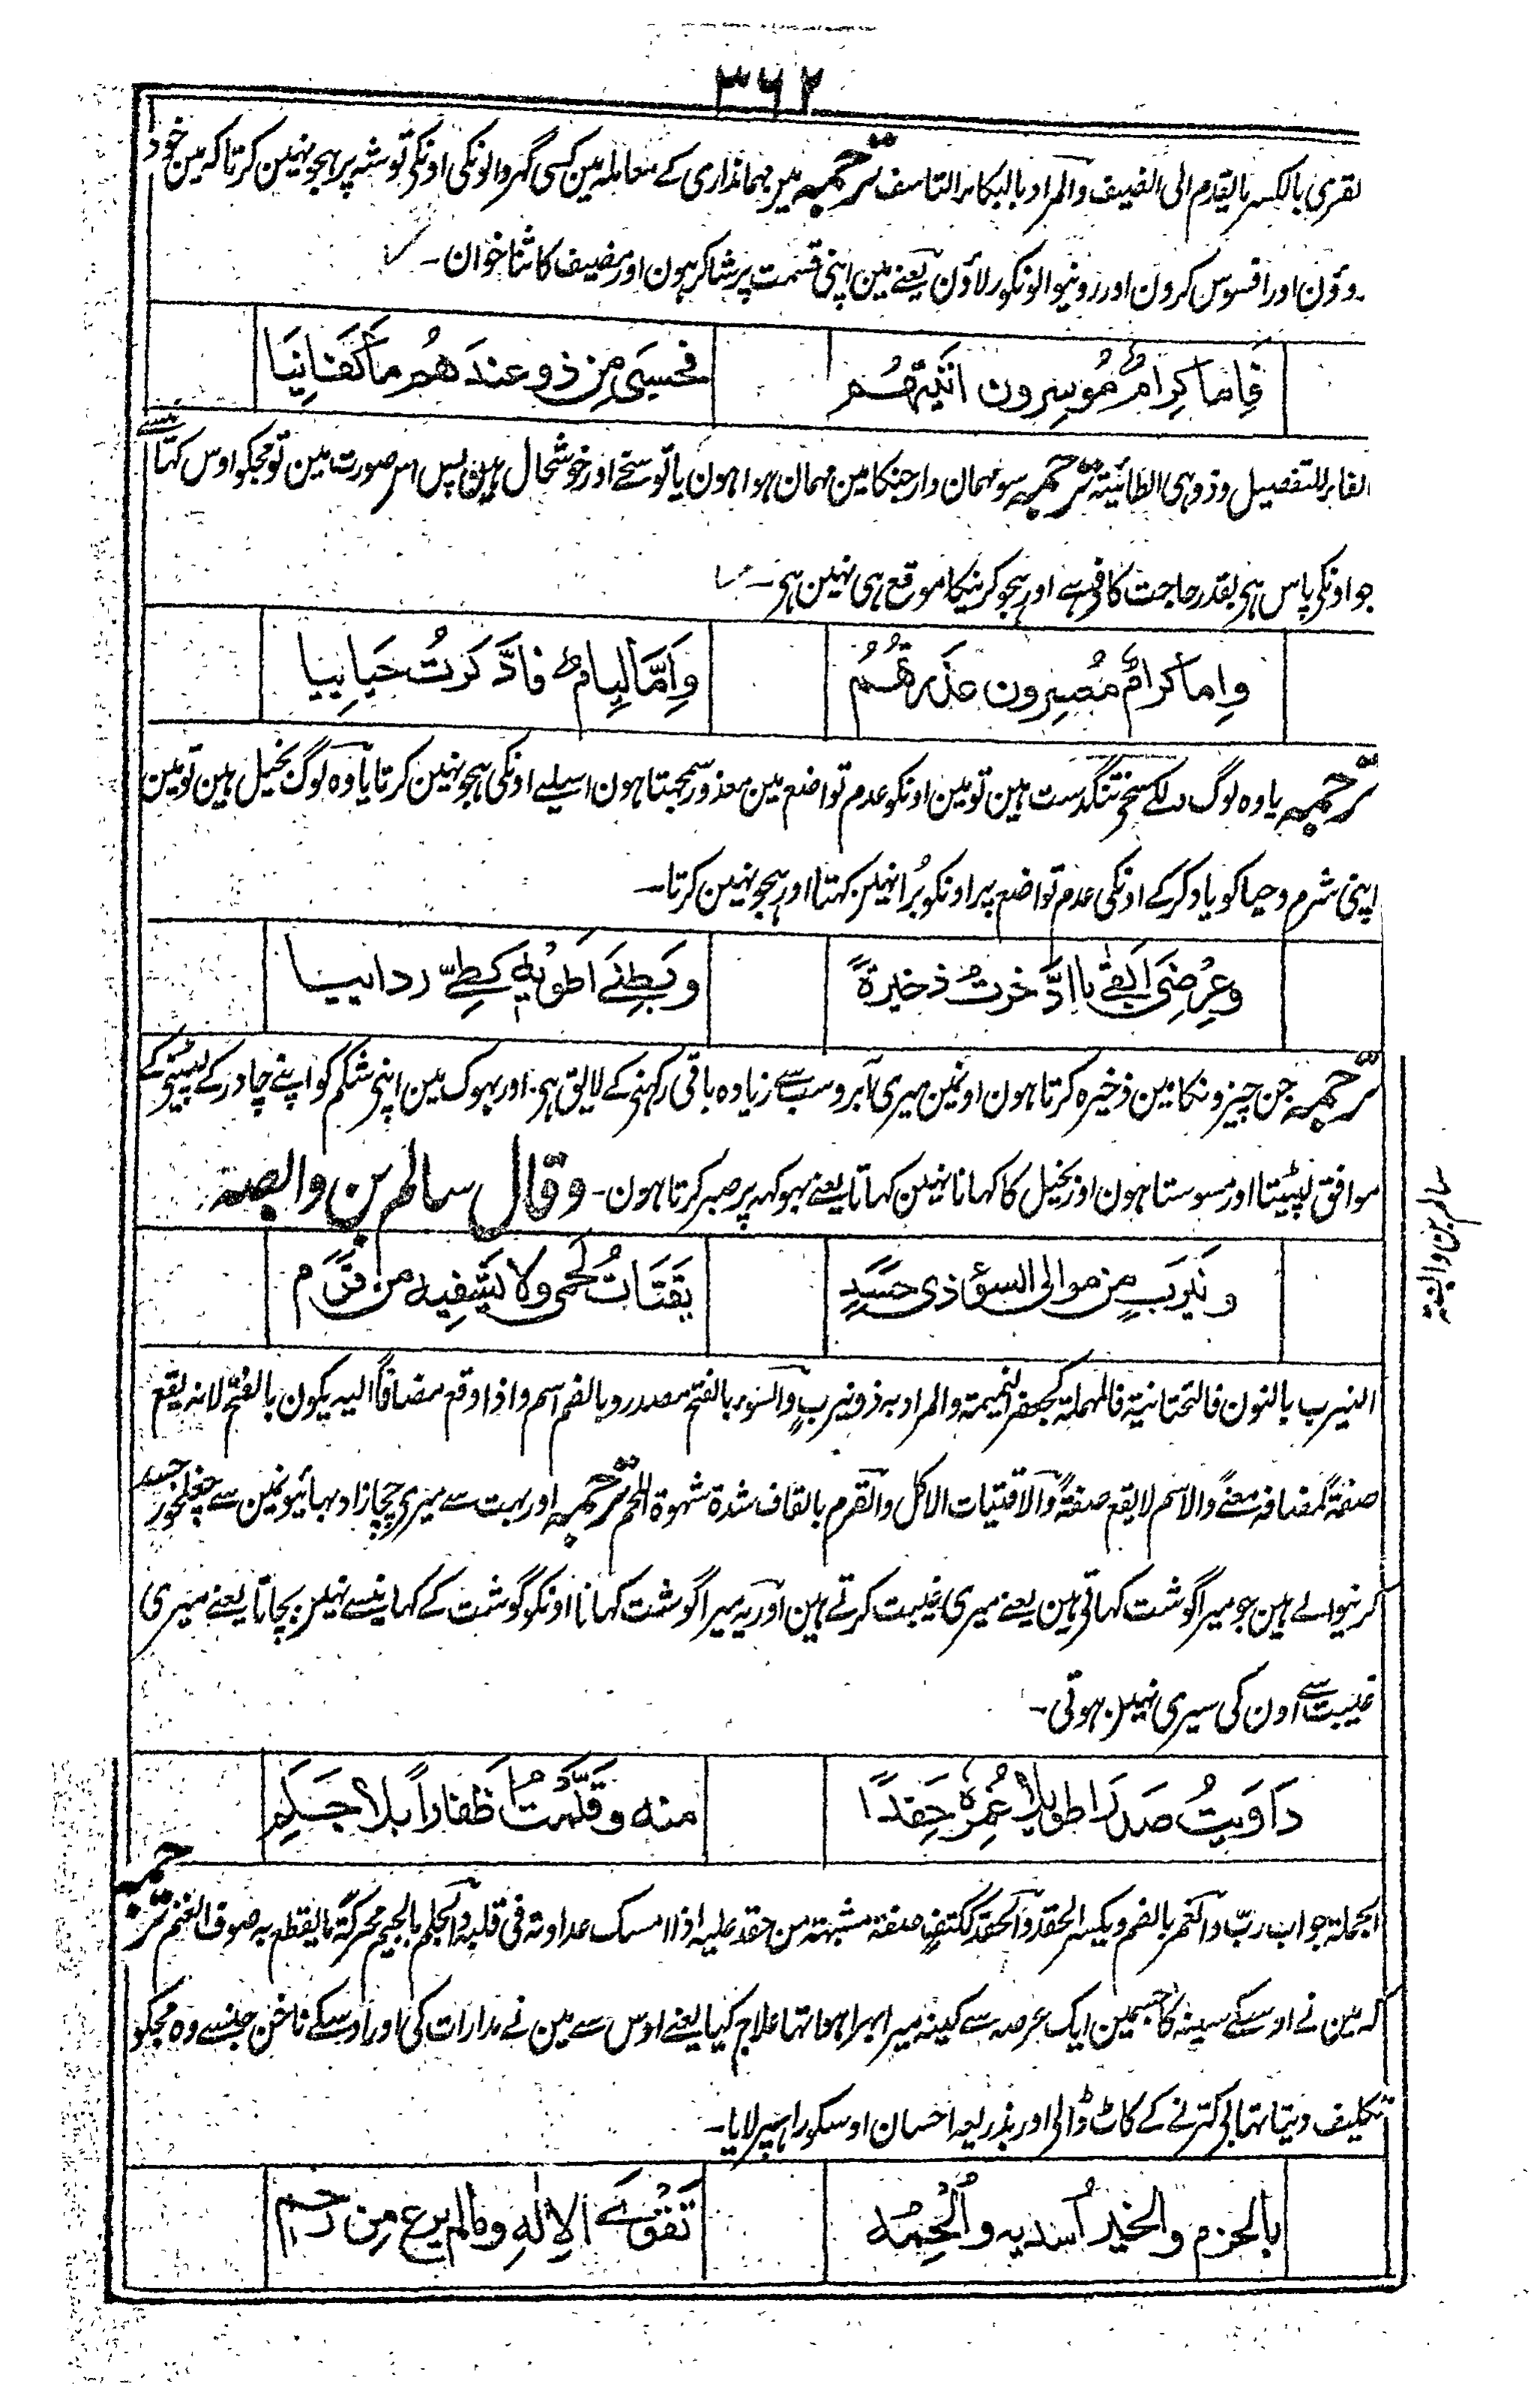 ۳۶۲
لقری بالکسر مایقدم الی الضیف والمراد بالبکاء التاسف ترجمہ میں مہمانداری کے معاملہ مین کسی گہر والونکی اونکی توشہ پر ہجو نہین کرتا کہ مین خود
روؤن اور افسوس کرون اور رونیوالونکو رلاؤن یعنے مین اپنی قسمت پر شاکر ہون اور مضیف کا ثنا خوان۔
فَاِما کِرامٌ مُوسِرون اتَیتُهُم
فحسبی مِن ذو عندَهُم ما کَفَانِیَا
الفاء للتفصیل وذو ہی الطائیۃ ترجمہ سو مہمان دار جنکا مین مہمان ہوا ہون یا تو سخے اور خوشحال ہین پس اس صورت مین تو مجکو اوس کہانیسے
جو اونکی پاس ہی بقدر حاجت کافی ہے اور ہجو کرنیکا موقع ہی نہین ہی۔
وِاما کرامٌ مُعسِرون عذَرتُهُم
وَاِمَّا لِیامٌ فادَّکرتُ حیاییا
ترجمہ یا وہ لوگ سخی تنگدست ہین تو مین اونکو عدم تواضع مین معذور سمجہتا ہون اسلیے اونکی ہجو نہین کرتا یا وہ لوگ بخیل ہین تو مین
اپنی شرم وحیا کو یاد کرکے اونکی عدم تواضع پر اونکو بُرا نہین کہتا اور ہجو نہین کرتا۔
وعِرضیَ اَبقٰی ما ادَّخرتُ ذخیرةً
وبَطنیَ اَطویهِ کطیِّ رداییا
ترجمہ جن چیزونکا مین ذخیرہ کرتا ہون اونمین میری آبرو سب سے زیادہ باقی رکہنی کے لایق ہی اور بہوک مین اپنی شکم کو اپنے چادر کے لپیٹنی کے
موافق لپیٹتا اور مسوستا ہون اور بخیل کا کہانا نہین کہاتا یعنے بہوکہہ پر صبر کرتا ہون۔ وقال سالم بن وابصہ
سالم بن وابصۃ
ونَیرَبٍ من موالی السوءِ ذی حَسَدٍ
یقتَاتُ لَحمی ولا یَشفیه من قَرَم
النیرب بالنون فالتحتانیۃ فالمہملۃ کجعفر النمیمۃ والمراد بہ ذو نیرب والسوء بالفتح مصدر وبالضم اسم واذا وقع مضافاً الیہ یکون بالفتح لانہ یقع
صفۃً لمضافہ معنےً والاسم لا یقع صفۃً والاقتیات الاکل والقرم بالقاف شدة شہوة اللحم ترجمہ اور بہت سے میری چچازاد بہائیونمین سے چغلخور حسد
کرنیوالے ہین جو میرا گوشت کہاتی ہین یعنے میری غیبت کرتے ہین اور یہ میرا گوشت کہانا اونکو گوشت کے کہانیسے نہین بچاتا یعنے میری
غیبت سے اون کی سیری نہین ہوتی۔
دَاوَیتُ صَدرًا طویلًا غِمرُه حَقِدًا
منه وقَلَّمتُ اَظفاراً بلا جَلَمِ
الجملۃ جواب رب والغمر بالضم ویکسر الحقد والحقد ککتفٍ صفۃ مشبہۃ من حقد علیہ اذا امسک عداوتہ فی قلبہ والجلم بالجیم محرکۃً ما یقطع بہ صوف الغنم ترجمہ
کہ مین نے اوسکے سینہ کا جسمین ایک عرصہ سے کینہ میرا بہرا ہوا تہا علاج کیا یعنے اوس سے مین نے مدارات کی اور اوسکے ناخن جنسے وہ مجکو
تکلیف دیتا تہا بی کترنے کے کاٹ ڈالی اور بذریعہ احسان اوسکو راہپر لایا۔
بالحزم والخیر اُسدیه واُلحِمُه
تَقوٰی الاِلٰهِ ومالم یرعَ مِن رَحِمِ